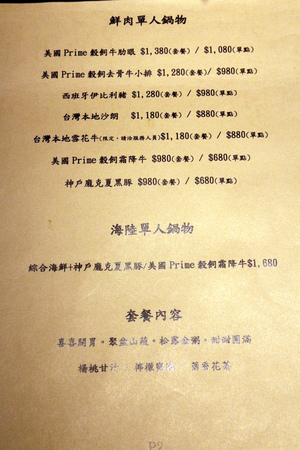 鮮肉單人鍋物
美國Prime穀飼牛肋眼 $1,380(套餐) / $1,080(單點)
美國Prime穀飼去骨牛小排 $1,280(套餐) / $980(單點)
西班牙伊比利豬 $1,280(套餐) / $980(單點)
台灣本地沙朗 $1,180(套餐) / $880(單點)
台灣本地雪花牛(限定,請洽服務人員)$1,180(套餐) / $880(單點)
美國Prime穀飼霜降牛 $980(套餐) / $680(單點)
神戶龐克夏黑豚 $980(套餐) / $680(單點)
海陸單人鍋物
綜合海鮮+神戶龐克夏黑豚/美國Prime穀飼霜降牛$1,680
套餐內容
喜喜開胃。聚盆山蔬。松露金粥。甜甜圓滿
楊桃甘汁